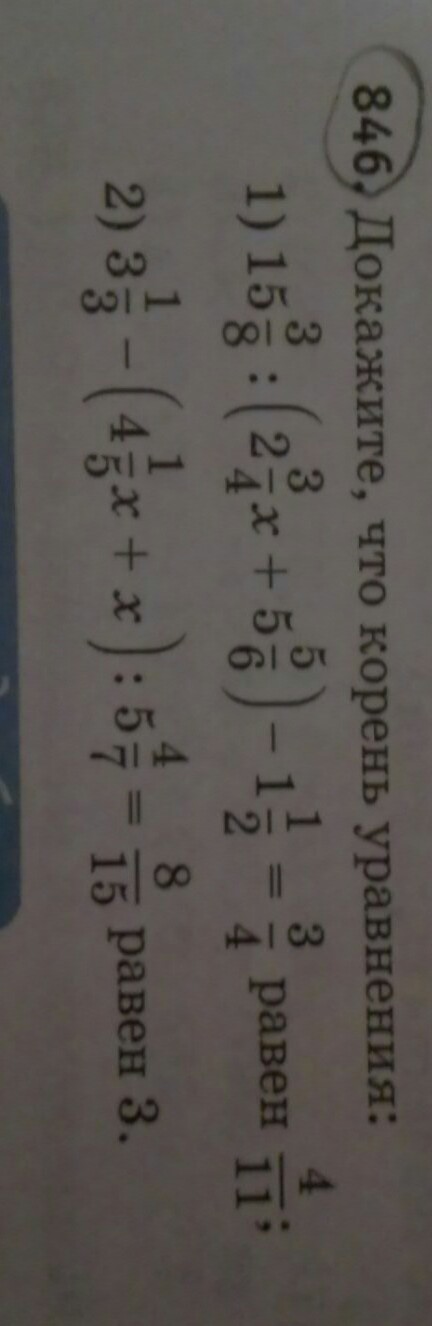 846. Докажите, что корень уравнения:
1) 15 3/8 : (2 3/4 x + 5 5/6) − 1 1/2 = 3/4 равен 4/11;
2) 3 1/3 − (4 1/5 x + x) : 5 4/7 = 8/15 равен 3.